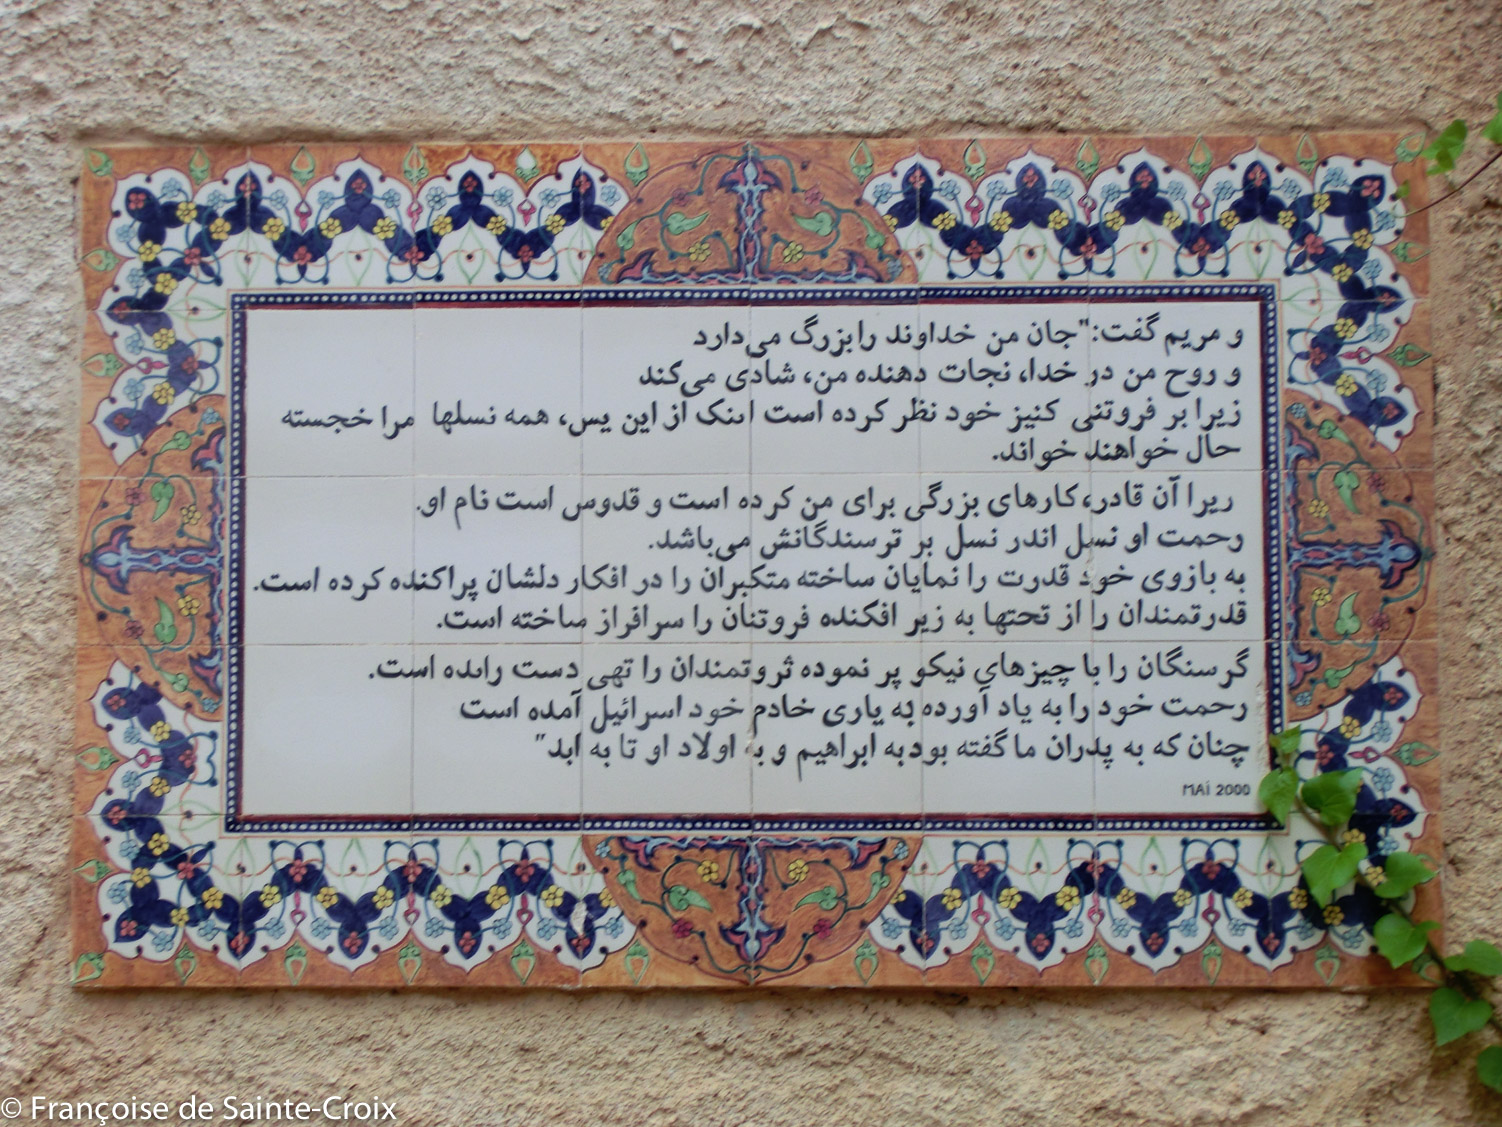 و مریم گفت:"جان من خداوند را بزرگ می‌دارد
و روح من در خدا، نجات دهنده من، شادی می‌کند
زیرا بر فروتنی کنیز خود نظر کرده است اینک از این پس، همه نسلها مرا خجسته
حال خواهند خواند.
زیرا آن قادر، کارهای بزرگی برای من کرده است و قدوس است نام او.
رحمت او نسل اندر نسل بر ترسندگانش می‌باشد.
به بازوی خود قدرت را نمایان ساخته متکبران را در افکار دلشان پراکنده کرده است.
قدرتمندان را از تختها به زیر افکنده فروتنان را سرافراز ساخته است.
گرسنگان را با چیزهای نیکو پر نموده ثروتمندان را تهی دست رانده است.
رحمت خود را به یاد آورده به یاری خادم خود اسرائیل آمده است
چنان که به پدران ما گفته بود به ابراهیم و به اولاد او تا به ابد"
MAÏ 2000
© Françoise de Sainte-Croix